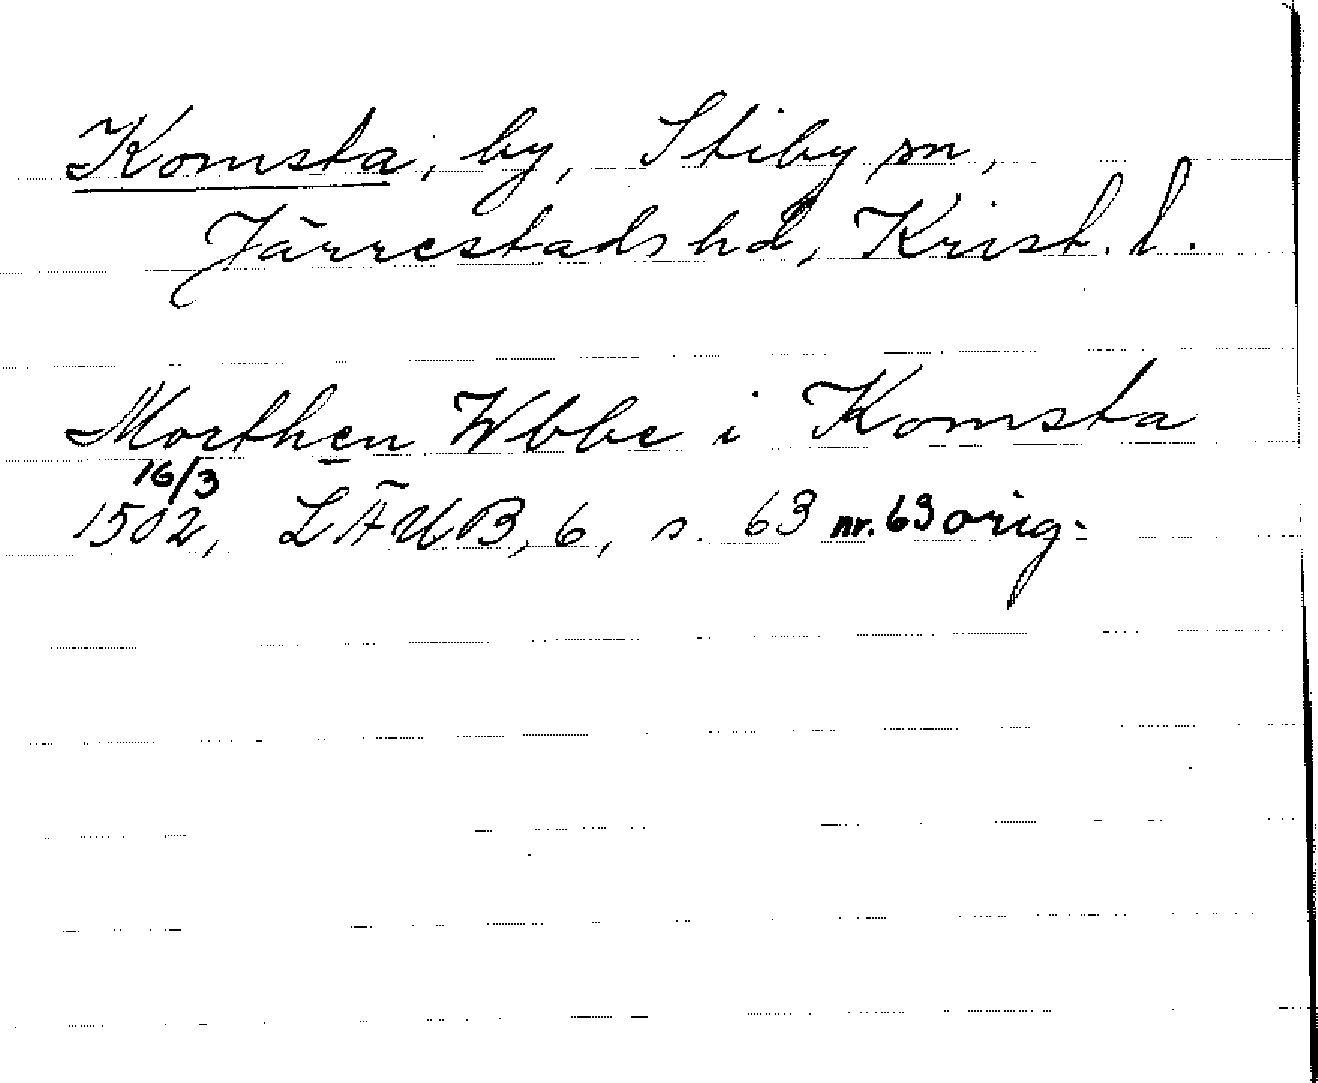 Komsta, by, Stiby sn,
Järrestads hd, Krist. l.
Morthen Wbbe i Komsta
16/3
1502, LÄUB, 6, s. 63 nr. 63 orig.